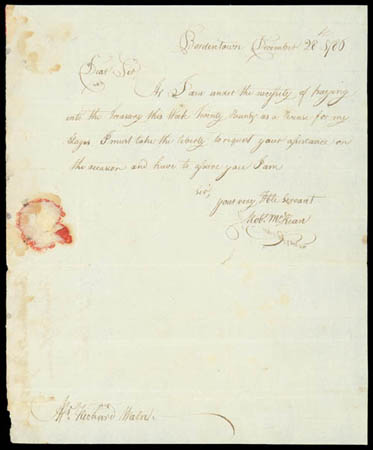 Bordentown December 28th 1780
Dear Sir
As I am under the necessity of paying
into the Treasury this Week Twenty Pounds as a for my
I must take the liberty to request your assistance on
the occasion and have to assure you I am
Sir,
Your very Hble Servant
Robt. McKean
Mr. Richard Waln